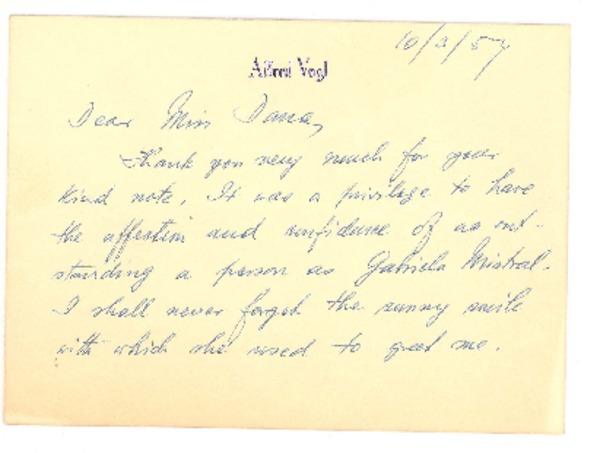 10/2/57
Alfred Vogl
Dear Miss Dana,
Thank you very much for your
kind note. It was a privilege to have
the affection and confidence of as out-
standing a person as Gabriela Mistral.
I shall never forget the sunny smile
with which she used to greet me.